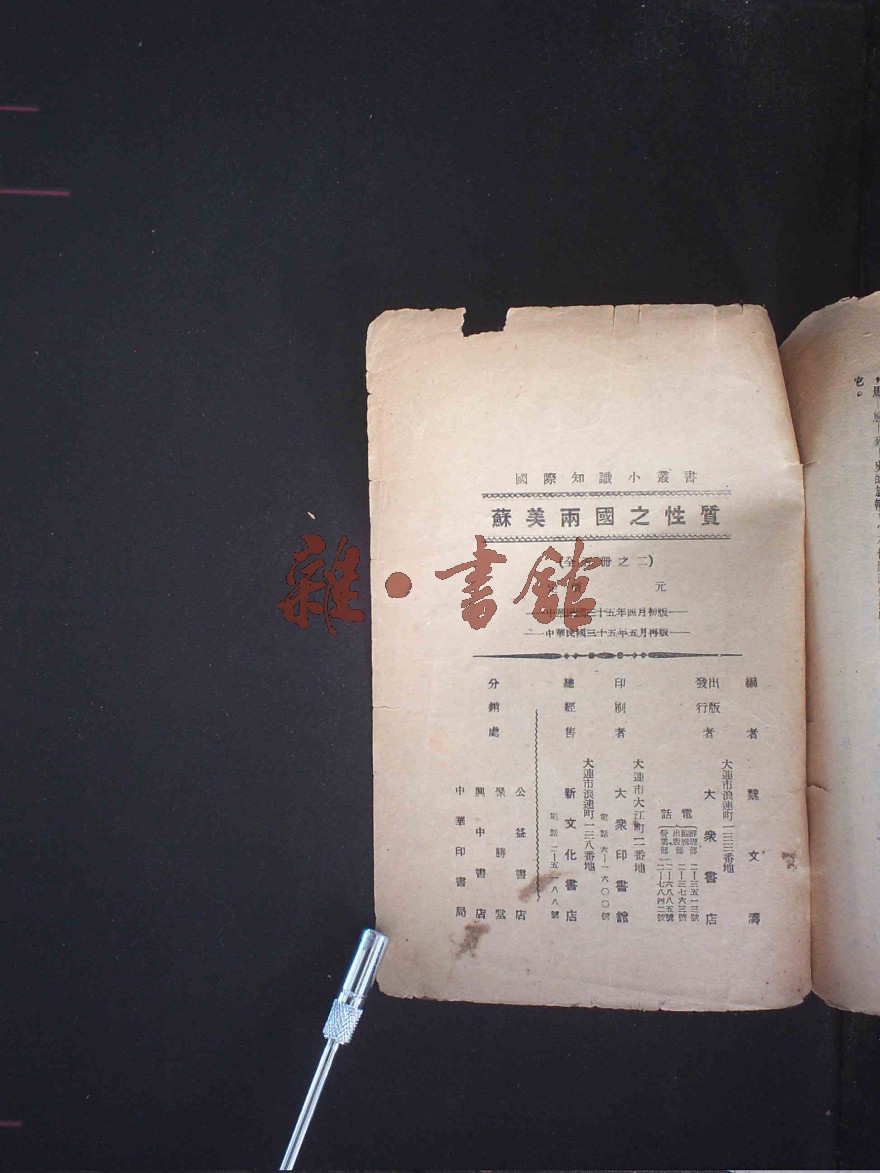 國際知識小叢書
蘇美兩國之性質
(全 冊之二)
元
中華民國三十五年四月初版
中華民國三十五年五月再版
編者 魏文濤
出版發行者 大衆書店
大連市浪速町一三三番地
電話
經理部 二—三五一三號
編輯部 二—三七六三號
出版部 二—六八八五號
營業部 二—七八四二號
印刷者 大衆印書館
大連市大江町二番地
電話 六—一六〇〇號
總經售 新文化書店
大連市浪速町一三八番地
電話 二—五一八八號
分銷處
公益書店
聚勝堂
興中書店
中華印書局
雜·書館